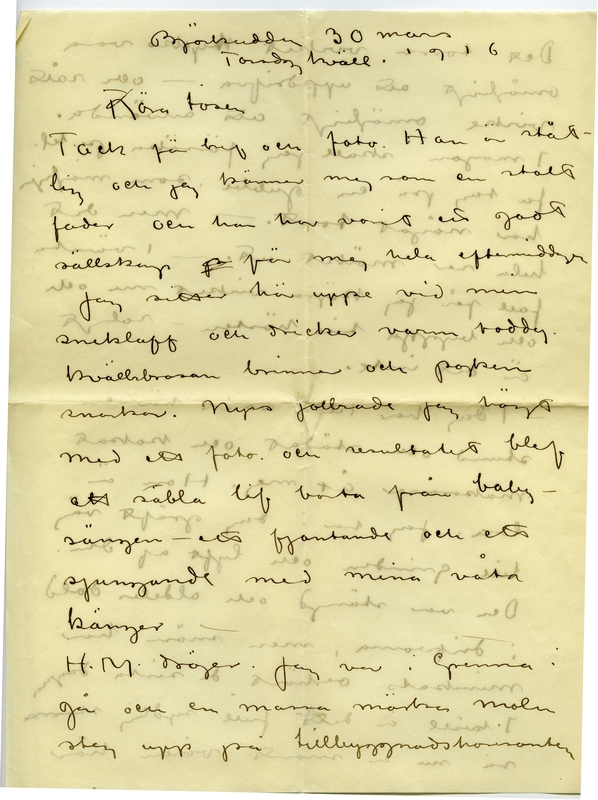 Björkudden 30 mars
Torsdag kväll. 1916
Kära tösen
Tack för bref och foto. Han är ståt-
lig och jag känner mig som en stolt
fader och han har varit ett godt
sällskap för mig hela eftermiddagen
Jag sitter här uppe vid min
sneklaff och dricker varm toddy.
Kvällsbrasan brinner och pojken
snarkar. Nyss jollrade jag högt
med ett foto. och resultatet blef
ett säbla lif borta från baby-
sängen – ett fjantande och ett
sjungande med mina våta
kängor —
H.M. dröjer. Jag var i Grenna i
går och en massa mörka moln
steg upp på tillbyggnadshorisonten